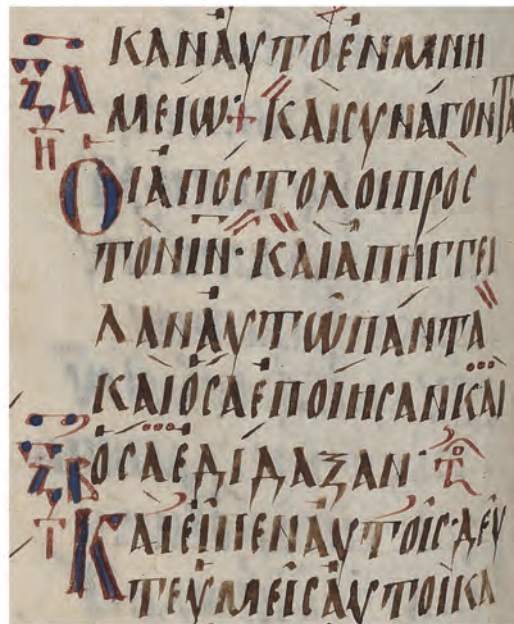 ΚΑΝΑΥΤΟΕΝΜΝΗ
ΞΑ
ΜΕΙΩ·+ΚΑΙϹΥΝΑΓΟΝΤΑ
Η
ΟΙΑΠΟϹΤΟΛΟΙΠΡΟϹ
ΤΟΝΙΝ·ΚΑΙΑΠΗΓΓΕΙ
ΛΑΝΑΥΤΩΠΑΝΤΑ
ΚΑΙΟϹΑΕΠΟΙΗϹΑΝΚΑΙ
ΞΒ ΟϹΑΕΔΙΔΑΞΑΝ·
ΚΑΙΕΙΠΕΝΑΥΤΟΙϹ·ΔΕΥ
ΤΕΥΜΕΙϹΑΥΤΟΙΚΑ